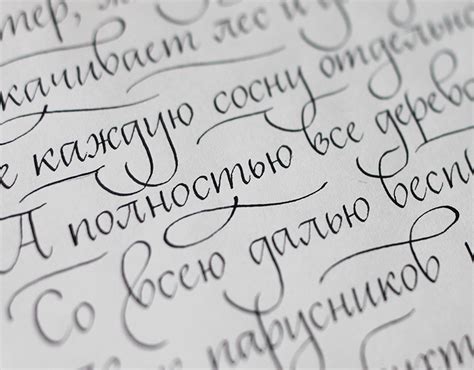 тер, ж
качивает лес и
е каждую сосну отдельн
А полностью все дерев
Со всею далью бесп
парусников
бухт